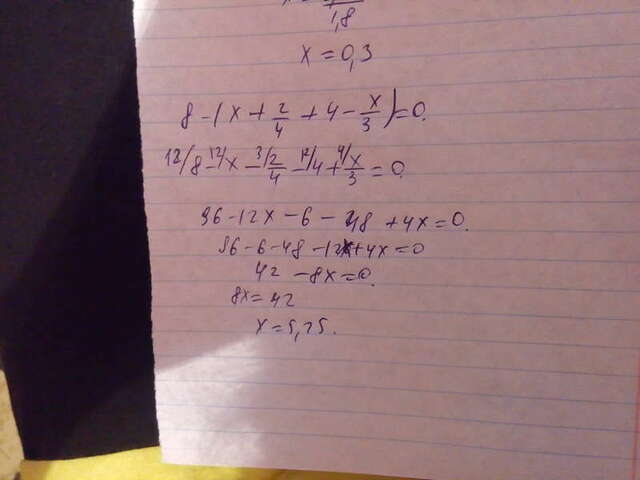 1,8
x = 0,3
8 - (x + 2/4 + 4 - x/3) = 0
12/8 - 12/x - 3/2/4 - 12/4 + 4/x/3 = 0
96 - 12x - 6 - 48 + 4x = 0
96 - 6 - 48 - 12x + 4x = 0
42 - 8x = 0
8x = 42
x = 5,25.